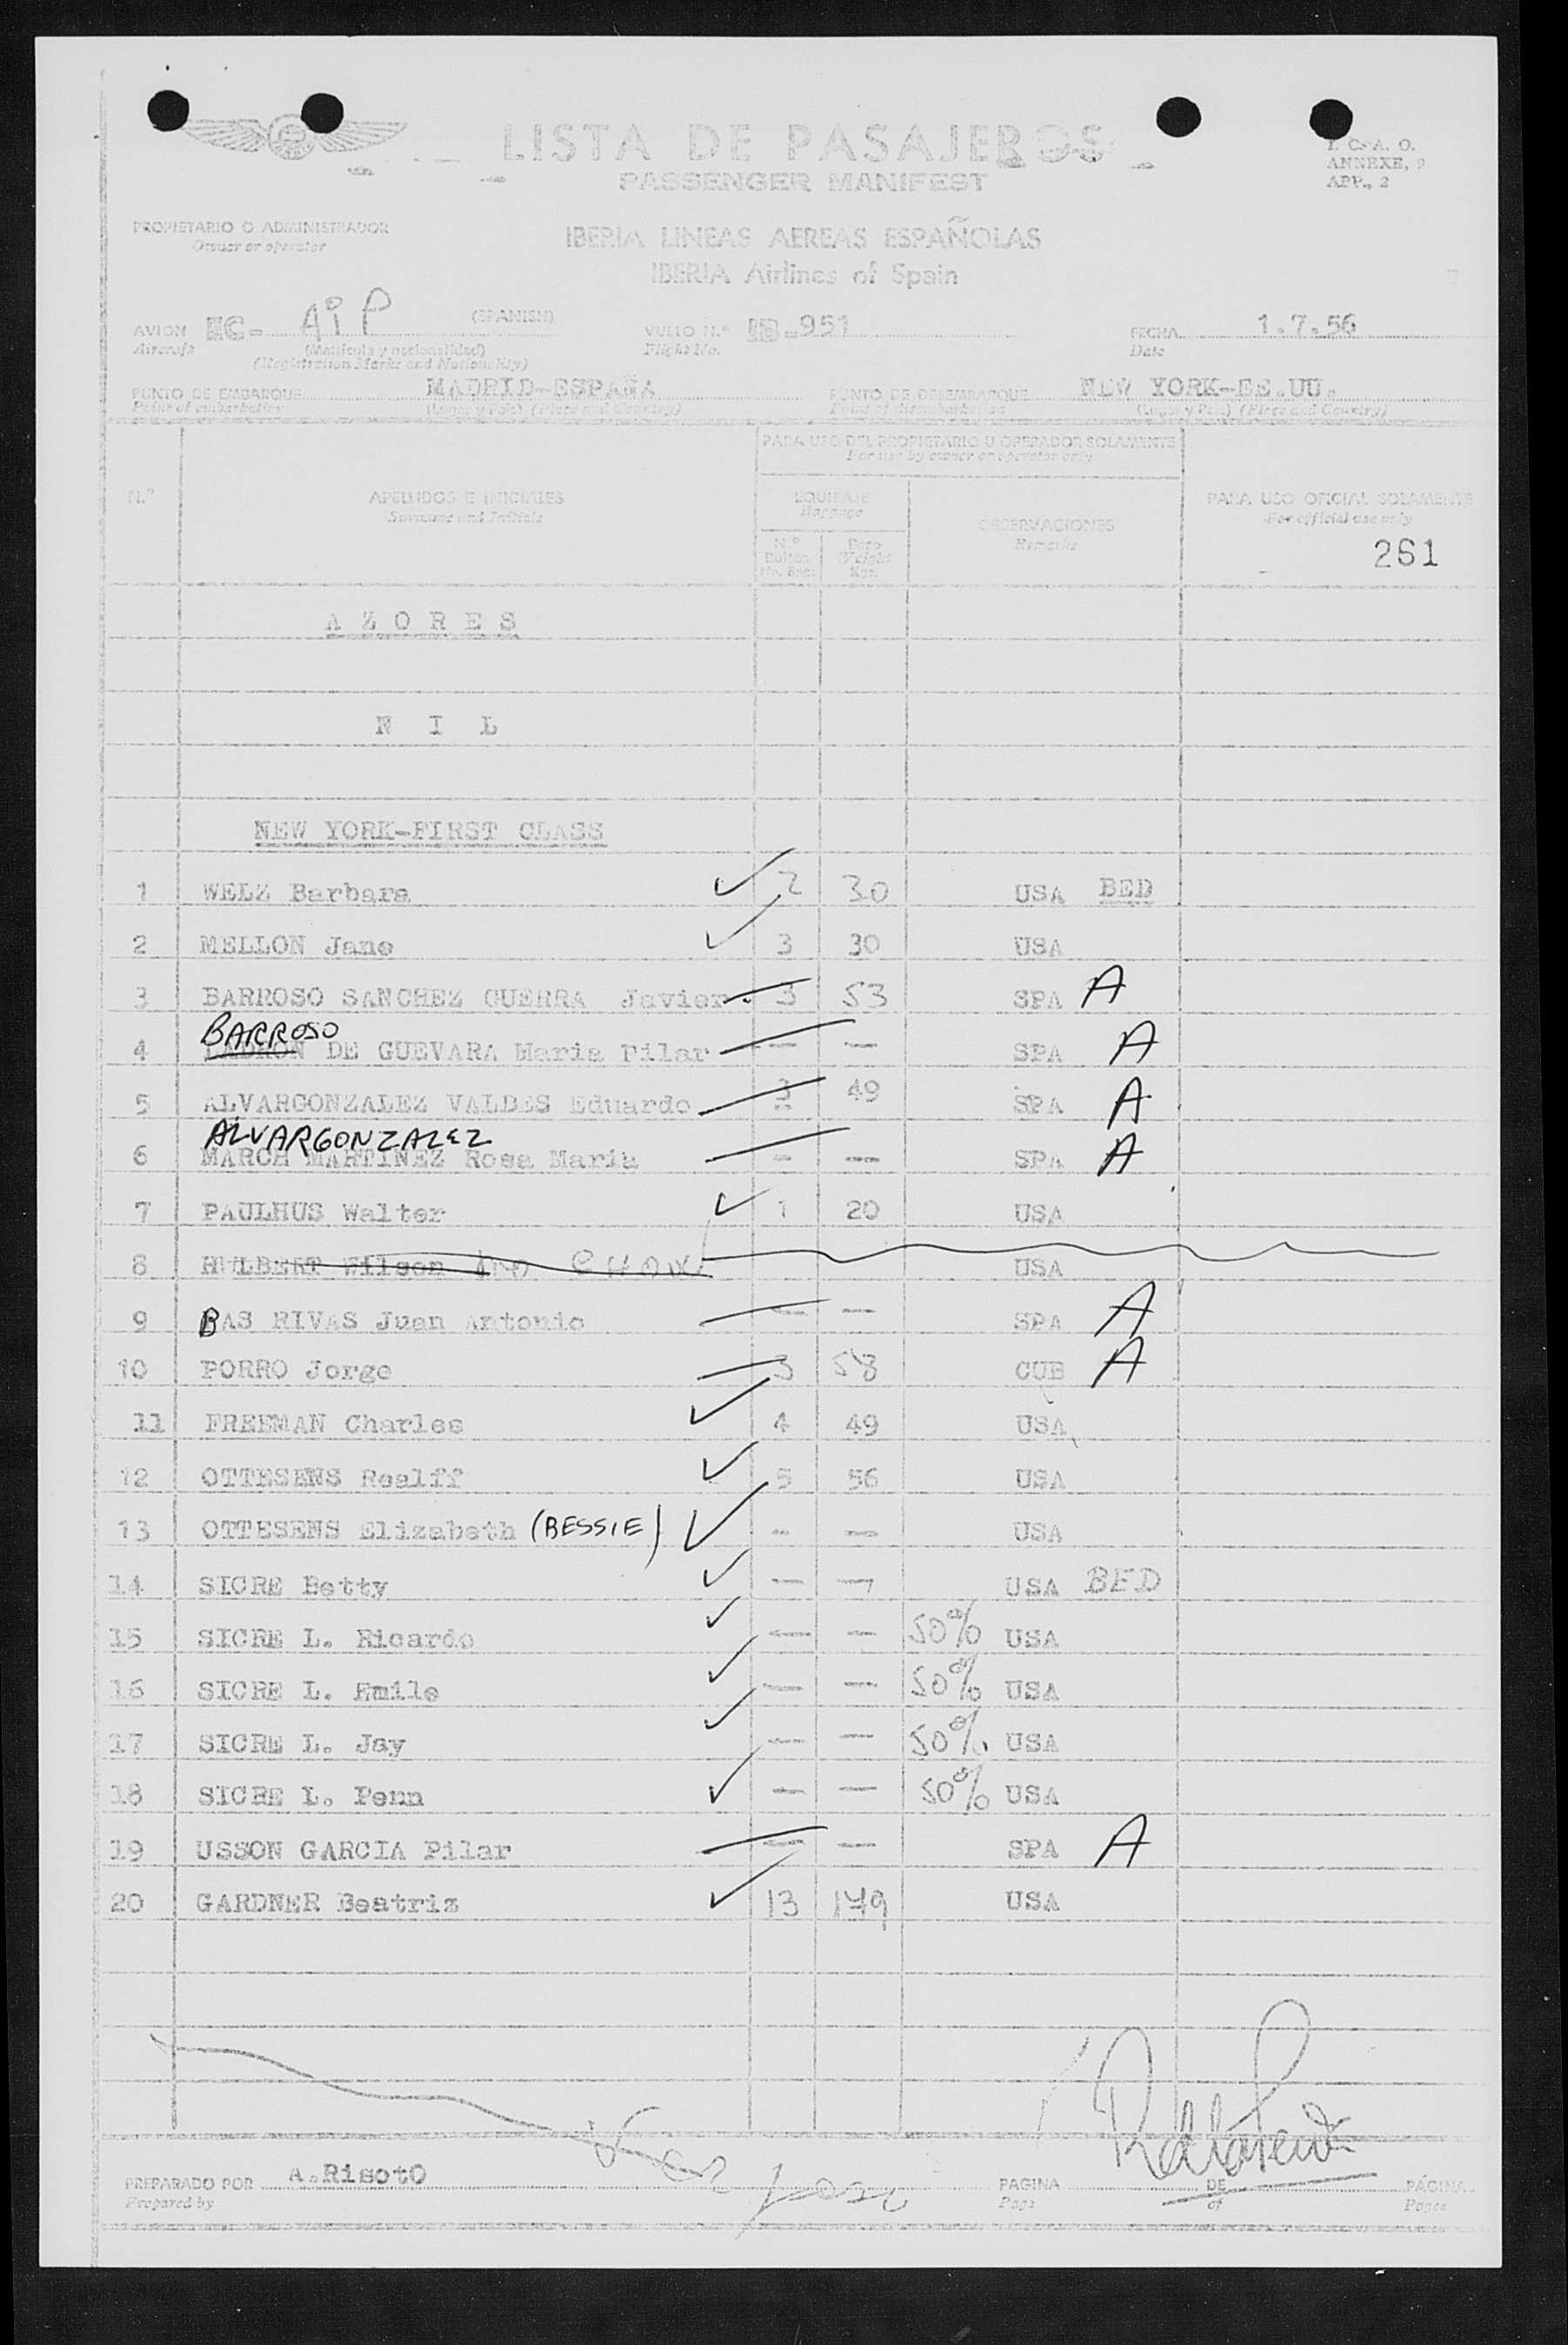 LISTA DE PASAJEROS
PASSENGER MANIFEST
I. C. A. O.
ANNEXE, 9
APP., 2
PROPIETARIO O ADMINISTRADOR
Owner or operator
IBERIA LINEAS AEREAS ESPAÑOLAS
IBERIA Airlines of Spain
AVION EC- AiP (SPANISH) VUELO N.º IB-951 FECHA 1.7.56
Aircraft (Matricula y nacionalidad) Flight No. Date
(Registration Marks and Nationality)
PUNTO DE EMBARQUE MADRID-ESPAÑA PUNTO DE DESEMBARQUE NEW YORK-EE.UU.
Point of embarkation (Lugar y País) (Place and Country) Point of disembarkation (Lugar y País) (Place and Country)
PARA USO DEL PROPIETARIO U OPERADOR SOLAMENTE
For use by owner or operator only
N.º APELLIDOS E INICIALES EQUIPAJE OBSERVACIONES PARA USO OFICIAL SOLAMENTE
Surname and Initials Baggage Remarks For official use only
N.º Bultos Peso
Weight Kgs.
261
AZORES
NIL
NEW YORK-FIRST CLASS
1 WELZ Barbara 2 30 USA BED
2 MELLON Jane 3 30 USA
3 BARROSO SANCHEZ GUERRA Javier 3 53 SPA A
BARROSO
4 LADRON DE GUEVARA Maria Pilar - - SPA A
5 ALVARGONZALEZ VALDES Eduardo 3 49 SPA A
ALVARGONZALEZ
6 MARCH MARTINEZ Rosa Maria - - SPA A
7 PAULHUS Walter 1 20 USA
8 HULBERT Wilson NO SHOW USA
9 BAS RIVAS Juan Antonio - - SPA A
10 PORRO Jorge 3 58 CUB A
11 FREEMAN Charles 4 49 USA
12 OTTESENS Realff 5 56 USA
13 OTTESENS Elizabeth (BESSIE) - - USA
14 SICRE Betty - - USA BED
15 SICRE L. Ricardo - - 50% USA
16 SICRE L. Emile - - 50% USA
17 SICRE L. Jay - - 50% USA
18 SICRE L. Penn - - 50% USA
19 USSON GARCIA Pilar - - SPA A
20 GARDNER Beatriz 13 179 USA
PREPARADO POR A.Risoto PAGINA DE PÁGINAS
Prepared by Page of Pages